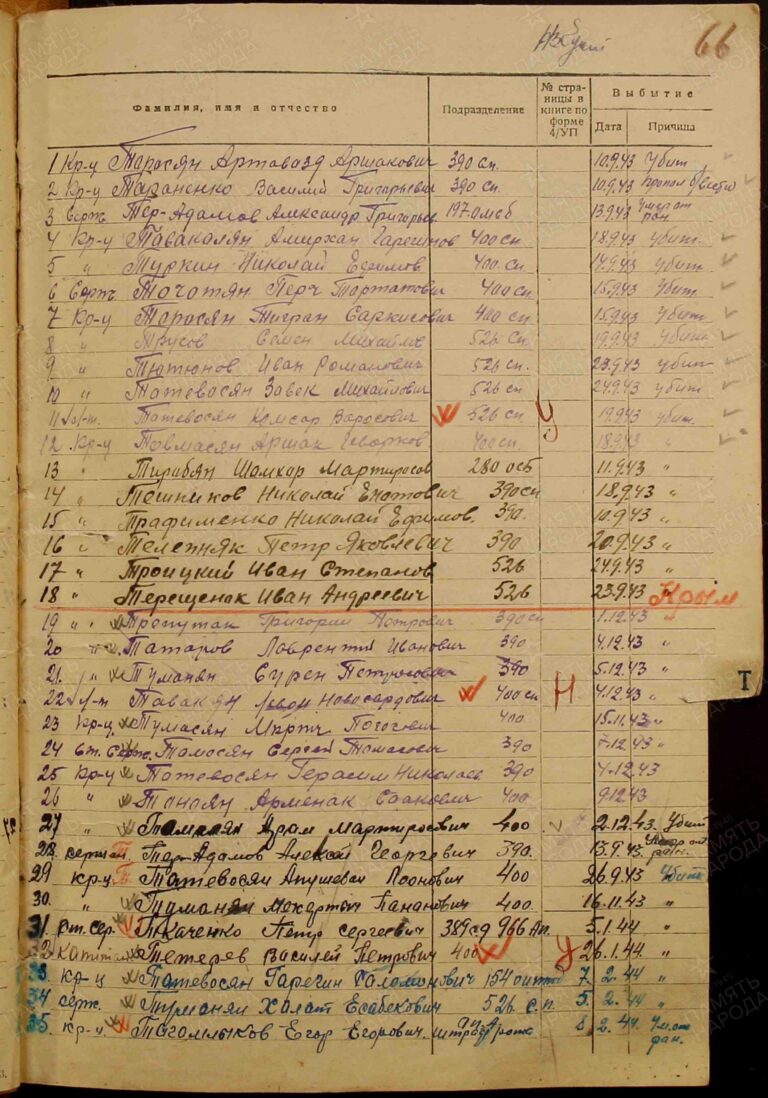 66
Фамилия, имя и отчество Подразделение № страницы в книге по форме 4/УП Выбытие
Дата Причина
1 Кр-ц Тарасян Артавазд Аршакович 390 сп. 10.9.43 Убит
2 Кр-ц Василий Григорьевич 390 сп. 10.9.43 пропал б/вести
3 Серж Тер-Адамов Александр Григорьев 197 омсб 13.9.43 Умер от ран
4 Кр-ц Тавакалян Амирхан Гарегинов 400 сп 18.9.43 убит
5 " Туркин Николай Ефимов 400 сп. 14.9.43 убит
6 Серж Точатян Перч 400 сп 15.9.43 Убит
7 Кр-ц Тарасян Тигран Саркисович 400 сп 15.9.43 убит
8 " Трусов Семен Михайлов 526 сп. 19.9.43 Убит
9 " Тютюнов Иван Романович 526 сп. 23.9.43 убит
10 " Татевосян Завек Михайлович 526 сп 24.9.43 убит
11 Татевосян Комсар Варосович 526 сп У 19.9.43 убит.
12 Кр-ц Товмасян Аршак Геворков 400 сп 18.9.43 "
13 " Тирабян Шамхар Мартиросов 280 осб 11.9.43 "
14 " Тешников Николай 390 сп 18.9.43 "
15 " Трафименко Николай Ефимов. 390. 10.9.43 "
16 " Телепняк Петр Яковлевич 390 20.9.43 "
17 " Троицкий Иван Степанов 526 24.9.43 "
18 " Терещенак Иван Андреевич 526 23.9.43 " Крым
19 " Григорий Петрович 390 сп 1.12.43 "
20 " Татаров Лаврентий Иванович 390 4.12.43 "
21. " Туманян Сурен 390 5.12.43 "
22 л-т Тавакян Левон Новосардович 400 сп Н 4.12.43 "
23 кр-ц Тумасян Мкртич Погосович 400 15.11.43 "
24 ст. серж. Томасян Сергей Томасович 390 7.12.43 "
25 кр-ц Татевосян Герасим Николаев 390 4.12.43
26 " Танаян Арменак Саакович 400 9.12.43
27 " Арам Мартиросович 400 2.12.43. Убит
28 сержант Тер-Адамов Алексей Георгевич 390. 13.9.43. Умер от ран.
29 кр-ц Татевосян Апушеван Леонович 400 26.9.43 Убит
30. " Туманян Мекартыч Пананович 400. 16.11.43 "
31. ст. сер. Ткаченко Петр Сергеевич 389 сд 966 ап. 5.1.44 "
32 Капитан Тетерев Василий Петрович 400 У 26.1.44. "
33 кр-ц Татевосян Гарегин Саломонович 154 7. 2. 44 "
34 серж. Туманян Халат Есабекович 526 с.п. 5. 2. 44 "
35. кр-ц Егор Егорович. 8. 2. 44. Ум. от ран.
Т
ПАМЯТЬ НАРОДА